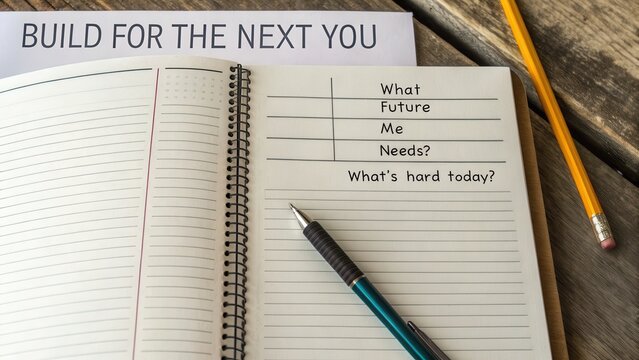 BUILD FOR THE NEXT YOU
What
Future
Me
Needs?
What's hard today?